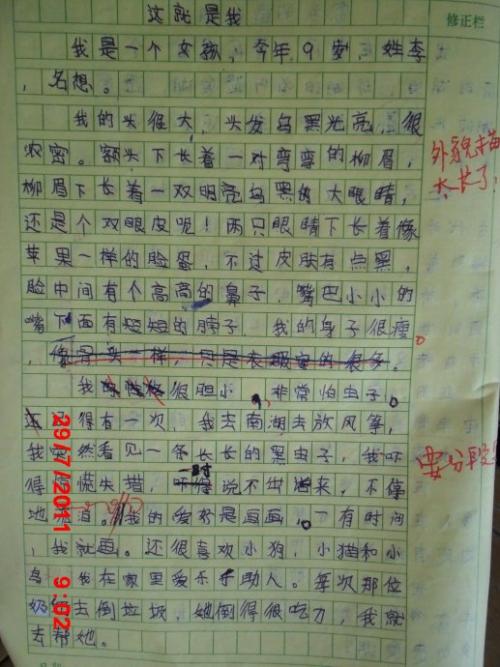 这就是我
修正栏
我是一个女孩,今年9岁,姓李
,名想。
我的头很大,头发乌黑光亮,很
浓密。额头下长着一对弯弯的柳眉,
柳眉下长着一双明亮乌黑的大眼睛,
还是个双眼皮呢!两只眼睛下长着像
苹果一样的脸蛋,不过皮肤有点黑,
脸中间有个高高的鼻子,嘴巴小小的
嘴下面有短短的脖子。我的身子很瘦
,像骨头一样,只是衣服穿的很多。
我很胆小,非常怕虫子。
记得有一次,我去南湖去放风筝,
我突然看见一条长长的黑虫子,我吓
得慌失措,一时说不出话来,不停
地 我的爱好是画画。一有时间
,我就画。还很喜欢小狗,小猫和小
鸟。我在家里爱乐于助人。每次那位
奶奶去倒垃圾,她倒得很吃力,我就
去帮她。
外貌描
太长了,
要分段
29/7/2011 9:02